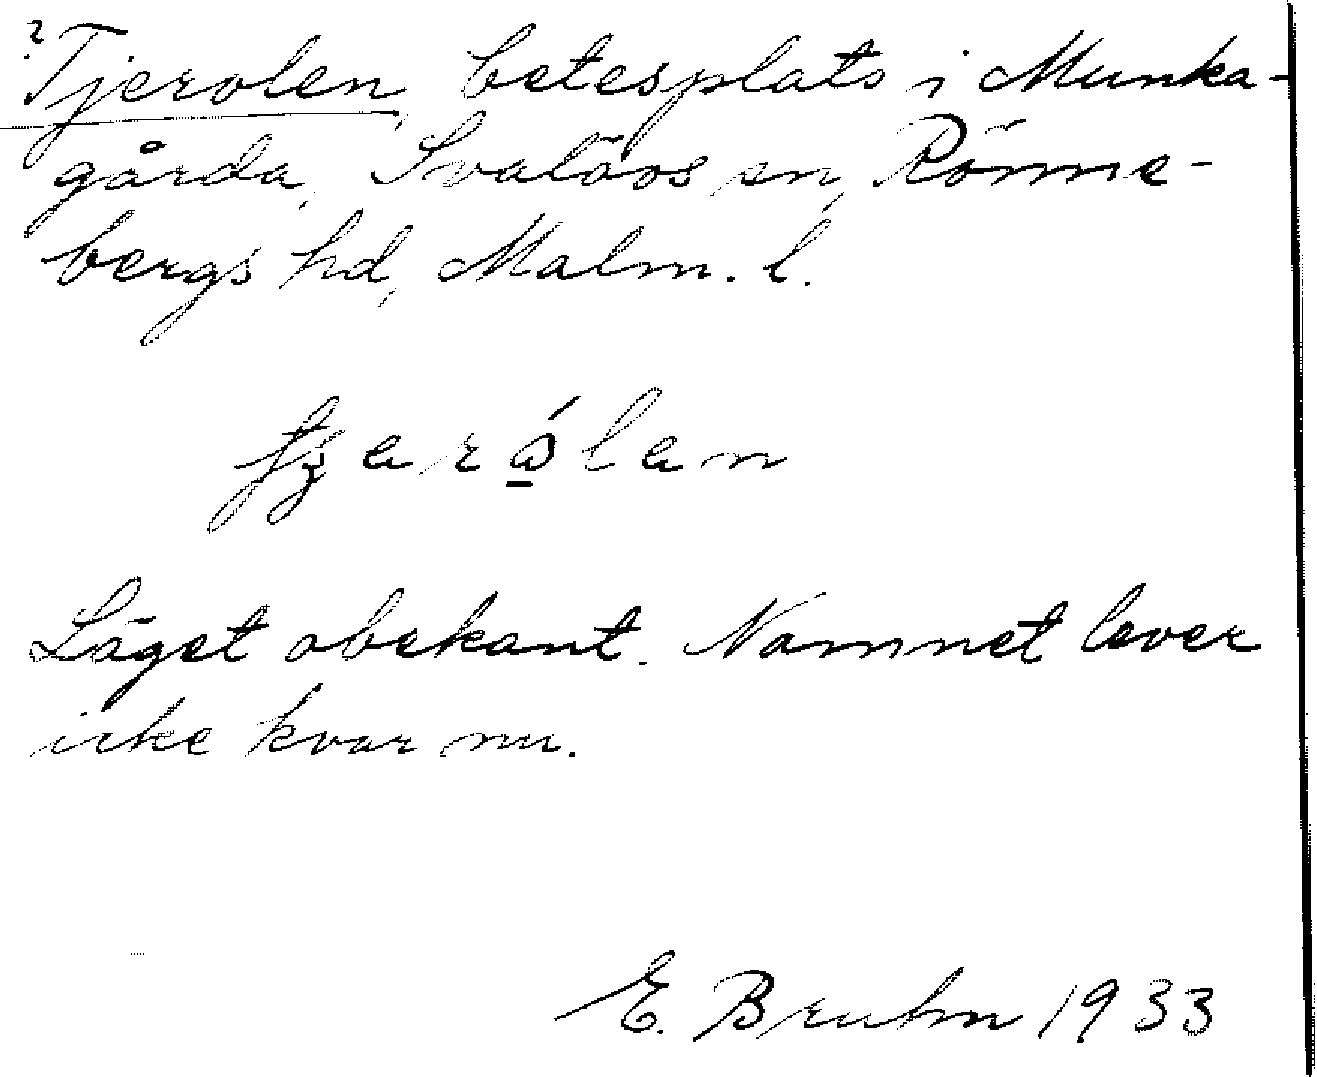 ? Tjerolen, betesplats i Munka-
gårda, Svalövs sn, Rönne-
bergs hd, Malm. l.
Läget obekant. Namnet lever
icke kvar nu.
E. Bruhn 1933